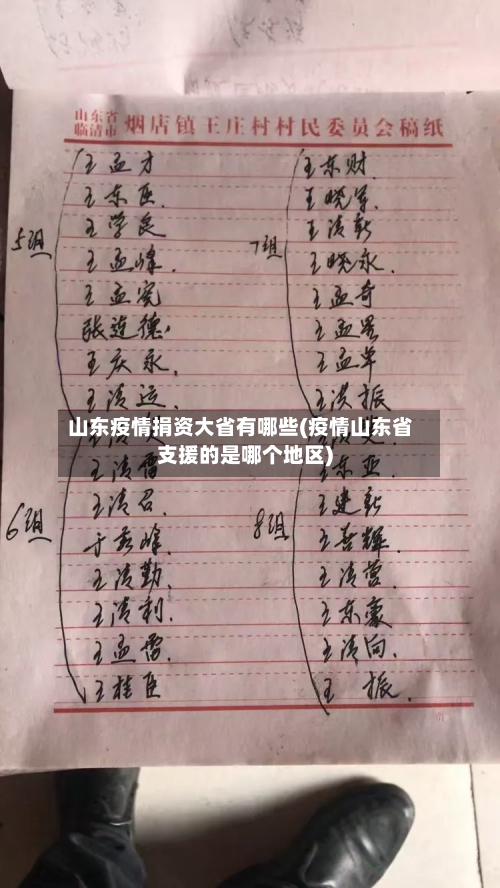 山东省
临清市
烟店镇王庄村村民委员会稿纸
5组
王孟才
王东臣.
王学良
王孟峰.
王孟宪
张连德.
王庆永.
王清运.
6组
王清雷
王清召.
于秀峰.
王清勤.
王清利.
王孟雷.
王桂臣
7组
王东财.
王晓军.
王清新
王晓永.
王孟奇
王孟军
王洪振
8组
王东亚.
王建新
王喜辉.
王清营.
王东豪
王清向.
王 振.
山东疫情捐资大省有哪些(疫情山东省
支援的是哪个地区)